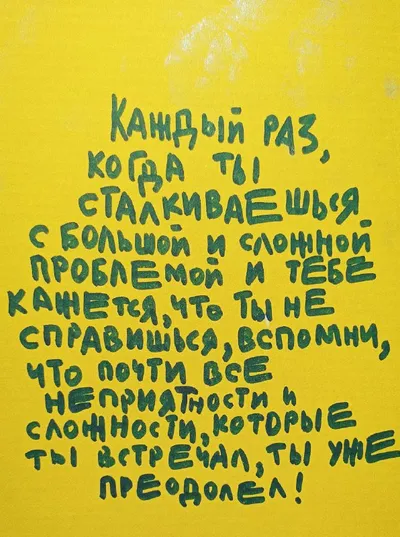 Каждый раз,
когда ты
сталкиваешься
с большой и сложной
проблемой и тебе
кажется, что ты не
справишься, вспомни,
что почти все
неприятности и
сложности, которые
ты встречал, ты уже
преодолел!